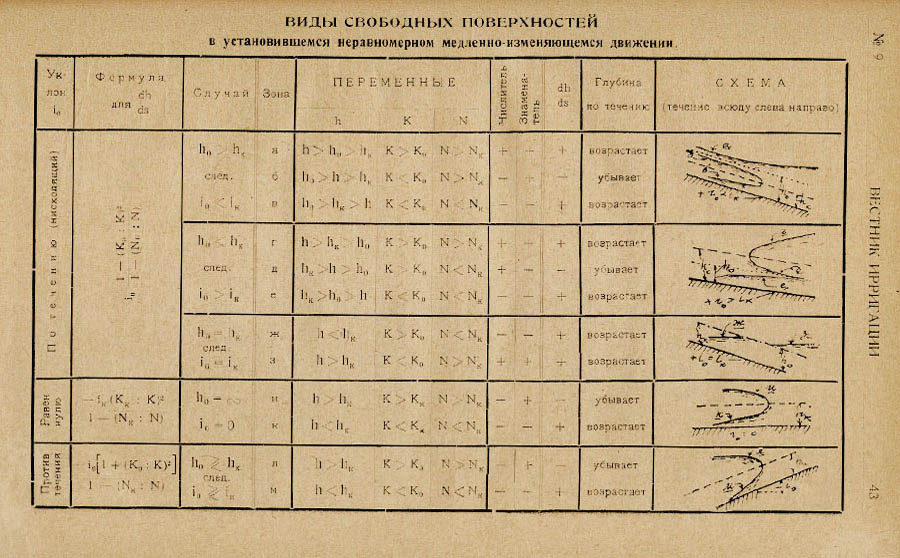 ВИДЫ СВОБОДНЫХ ПОВЕРХНОСТЕЙ
в установившемся неравномерном медленно-изменяющемся движении.
№ 9
ВЕСТНИК ИРРИГАЦИИ
43
Ук-лон i₀ | Формула для dh/ds | Случай | Зона | ПЕРЕМЕННЫЕ h K N | Числитель | Знамена-тель | dh/ds | Глубина по течению | СХЕМА (течение всюду слева направо)
По течению (нисходящий)
i₀ 1 — (K₀ : K)² / 1 — (Nₖ : N)
h₀ > hₖ | а | h > h₀ > hₖ | K > K₀ | N > Nₖ | + | + | + | возрастает
след. | б | h₀ > h > hₖ | K < K₀ | N > Nₖ | — | + | — | убывает
i₀ < iₖ | в | h₀ > hₖ > h | K < K₀ | N < Nₖ | — | — | + | возрастает
+ i₀ < iₖ
h₀ < hₖ | г | h > hₖ > h₀ | K > K₀ | N > Nₖ | + | + | + | возрастает
след. | д | hₖ > h > h₀ | K > K₀ | N < Nₖ | + | — | — | убывает
i₀ > iₖ | е | hₖ > h₀ > h | K < K₀ | N < Nₖ | — | — | + | возрастает
+ i₀ > iₖ
h₀ = hₖ | ж | h < hₖ | K < K₀ | N < Nₖ | — | — | + | возрастает
след.
i₀ = iₖ | з | h > hₖ | K > K₀ | N > Nₖ | + | + | + | возрастает
Равен нулю
— iₖ (Kₖ : K)² / 1 — (Nₖ : N)
h₀ = ∞ | и | h > hₖ | K > Kₖ | N > Nₖ | — | + | — | убывает
i₀ = 0 | к | h < hₖ | K < Kₖ | N < Nₖ | — | — | + | возрастает
Против течения
— i₀[1 + (K₀ : K)²] / 1 — (Nₖ : N)
h₀ ≷ hₖ | л | h > hₖ | K > K₀ | N > Nₖ | + | убывает
след.
i₀ ≷ iₖ | м | h < hₖ | K < K₀ | N < Nₖ | — | — | + | возрастает